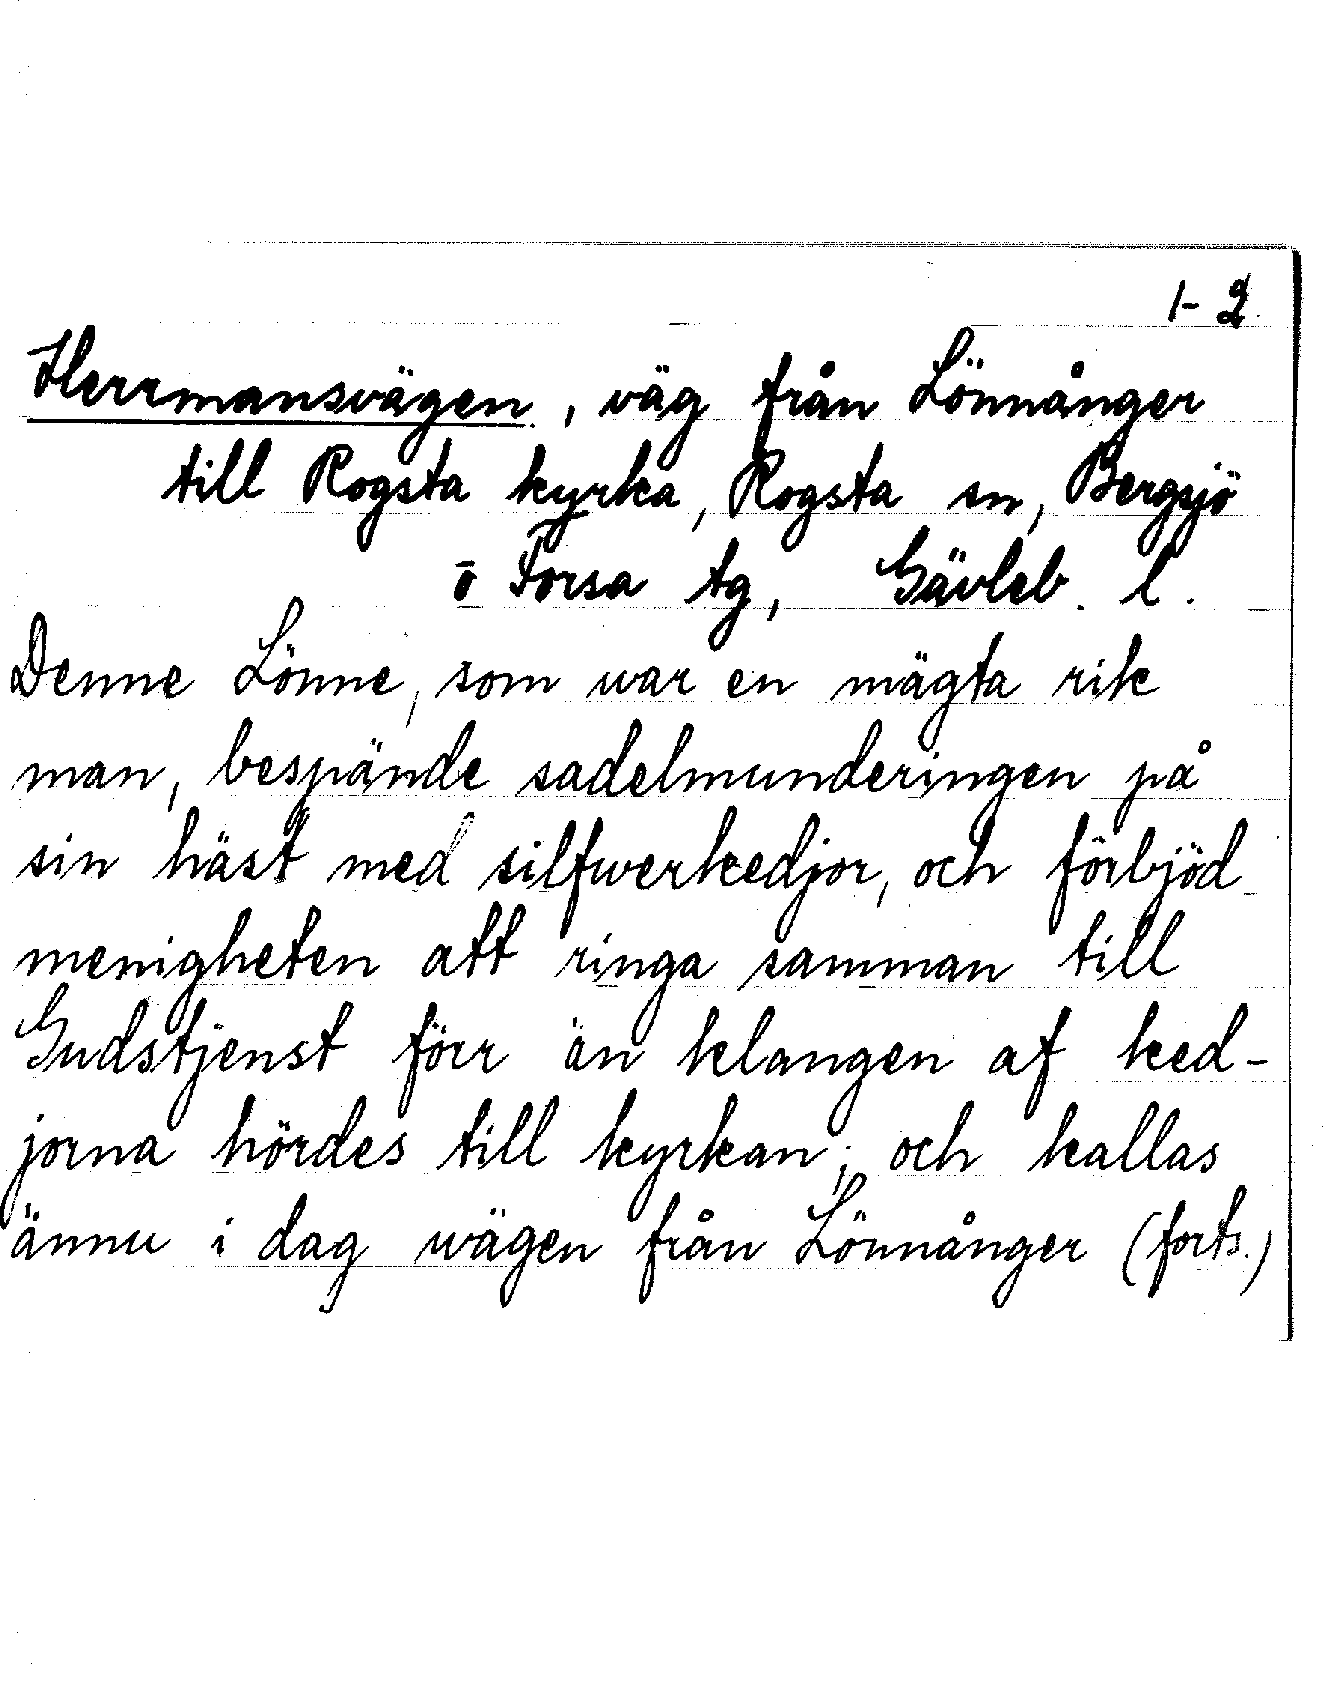 1-2
Herrmansvägen, väg från Lönnånger
till Rogsta kyrka, Rogsta sn, Bergsjö
o Forsa tg, Gävleb. l.
Denne Lönne, som war en mägta rik
man, bespände sadelmunderingen på
sin häst med silfwerkedjor, och förbjöd
menigheten att ringa samman till
Gudstjenst förr än klangen af ked-
jorna hördes till kyrkan; och kallas
ännu i dag wägen från Lönnånger (forts.)